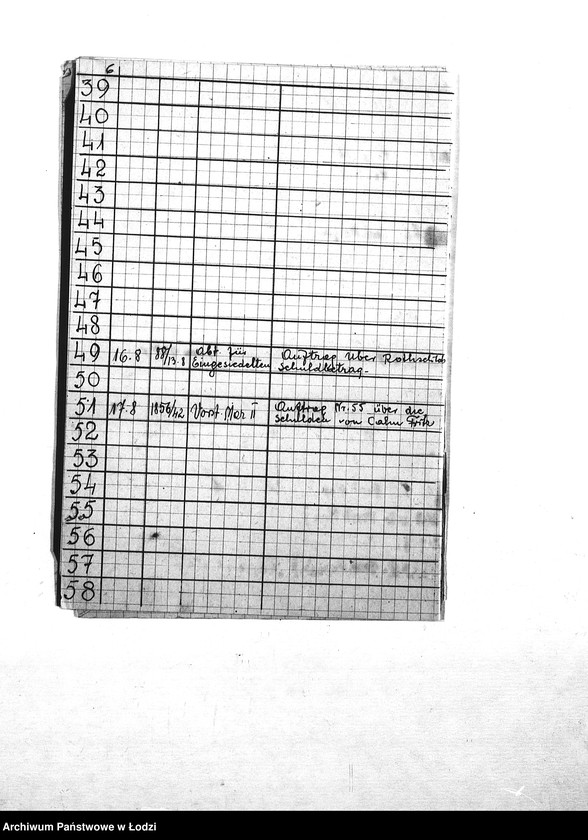 6
39
40
41
42
43
44
45
46
47
48
49 16.8 88/13.8 Abt für Eingesiedelten Auftrag über Rothschilds
Schuldbetrag.
50
51 17.8 1856/42 Vorst. II Auftrag Nr. 55 über die
Schulden von Cahn
52
53
54
55
56
57
58
Archiwum Państwowe w Łodzi